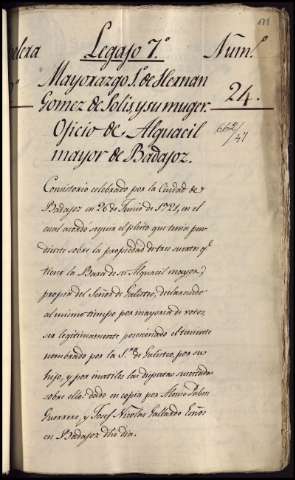 Legajo 7.º Num.º
Mayorazgo 1.º de Hernan
Gomez de Solis y su muger
24.
Oficio de Alguacil
mayor de Badajoz.
662/47
Consistorio celebrado por la Ciudad de
Badajoz en 26 de Junio de en el
cual acordó seguir el pleito que tenia pen-
diente sobre la propiedad de
tiene la de su Alguacil mayor,
propia del Señor de Galisteo, declarando
al mismo tiempo por mayoria de votos
ser legitimamente posesionado el teniente
nombrado por la de Galisteo, por su
hijo, y por inutiles las disputas suscitadas
sobre ello: dado en copia por Alonso
Guerrero, y Josef Nicolas Gallardo
en Badajoz dho dia.